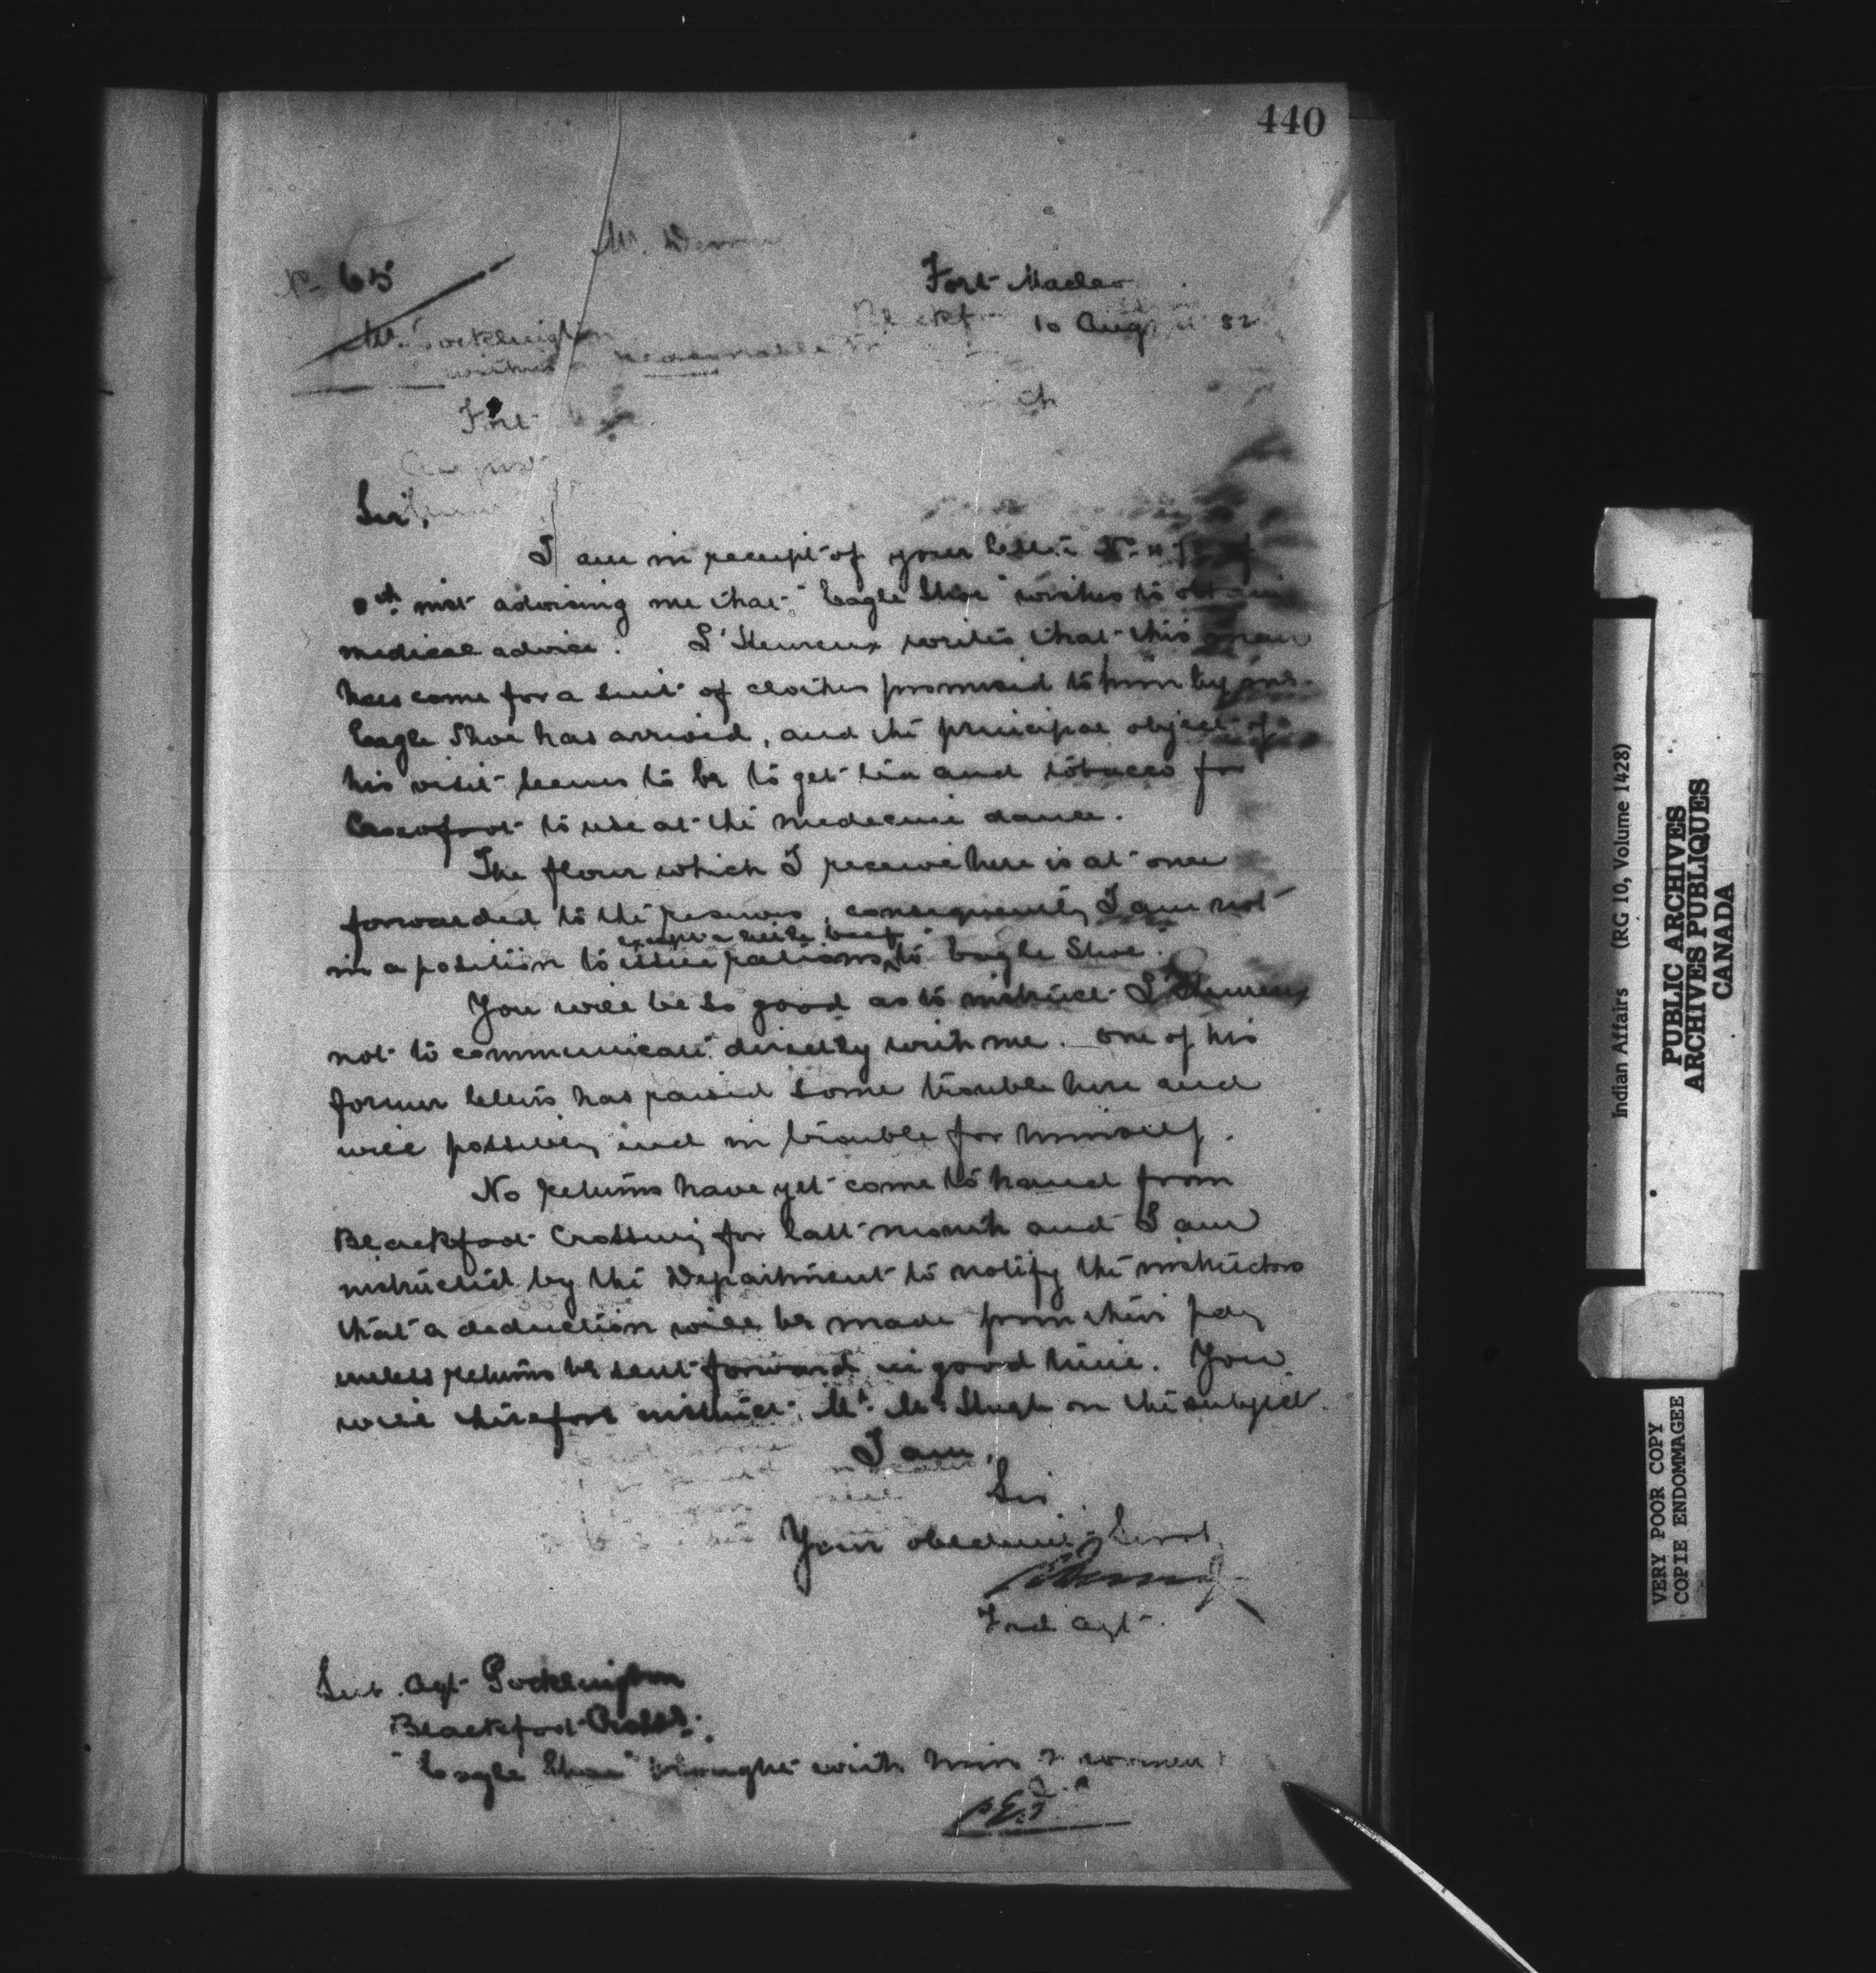 440
Mr.
No 65
Fort Macleo
10 Aug 82
Mr. Pocklington
Fort
Sir,
I am in receipt of your letter No of
8th inst advising me that "Eagle Shoe" wishes to obtain
medical advice. L'Heureux writes that this man
has come for a suit of clothes promised to him by me.
Eagle Shoe has arrived, and the principal object of
his visit seems to be to get tea and tobacco for
Crowfoot to use at the medecine dance.
The flour which I receive here is at once
forwarded to the reserves, consequently I am not
except a little beef
in a position to issue rations to Eagle Shoe.
You will be so good as to instruct L'Heureux
not to communicate directly with me. One of his
former letters has raised some trouble here and
will possibly end in trouble for himself.
No returns have yet come to hand from
Blackfoot Crossing for last month and I am
instructed by the Department to notify the instructors
that a deduction will be made from their pay
unless returns be sent forward in good time. You
will therefore instruct Mr. McHugh on this subject.
I am,
Sir
Your obedient Servt
Ind Agt.
Sub. Agt Pocklington
Blackfoot Crossg.
"Eagle Shoe" brought with him 2 women
Indian Affairs (RG 10, Volume 1428)
PUBLIC ARCHIVES
ARCHIVES PUBLIQUES
CANADA
VERY POOR COPY
COPIE ENDOMMAGEE